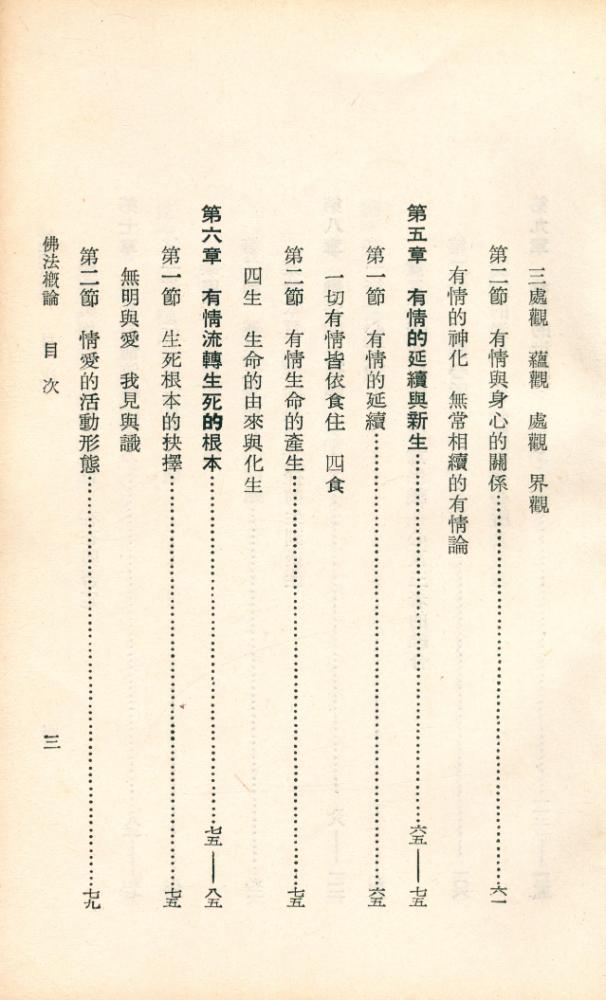 三處觀　蘊觀　處觀　界觀
第二節　有情與身心的關係……六一
有情的神化　無常相續的有情論
第五章　有情的延續與新生……六五——七五
第一節　有情的延續……六五
一切有情皆依食住　四食
第二節　有情生命的產生……七五
四生　生命的由來與化生
第六章　有情流轉生死的根本……七五——八五
第一節　生死根本的抉擇……七五
無明與愛　我見與識
第二節　情愛的活動形態……七九
佛法概論　目次　三